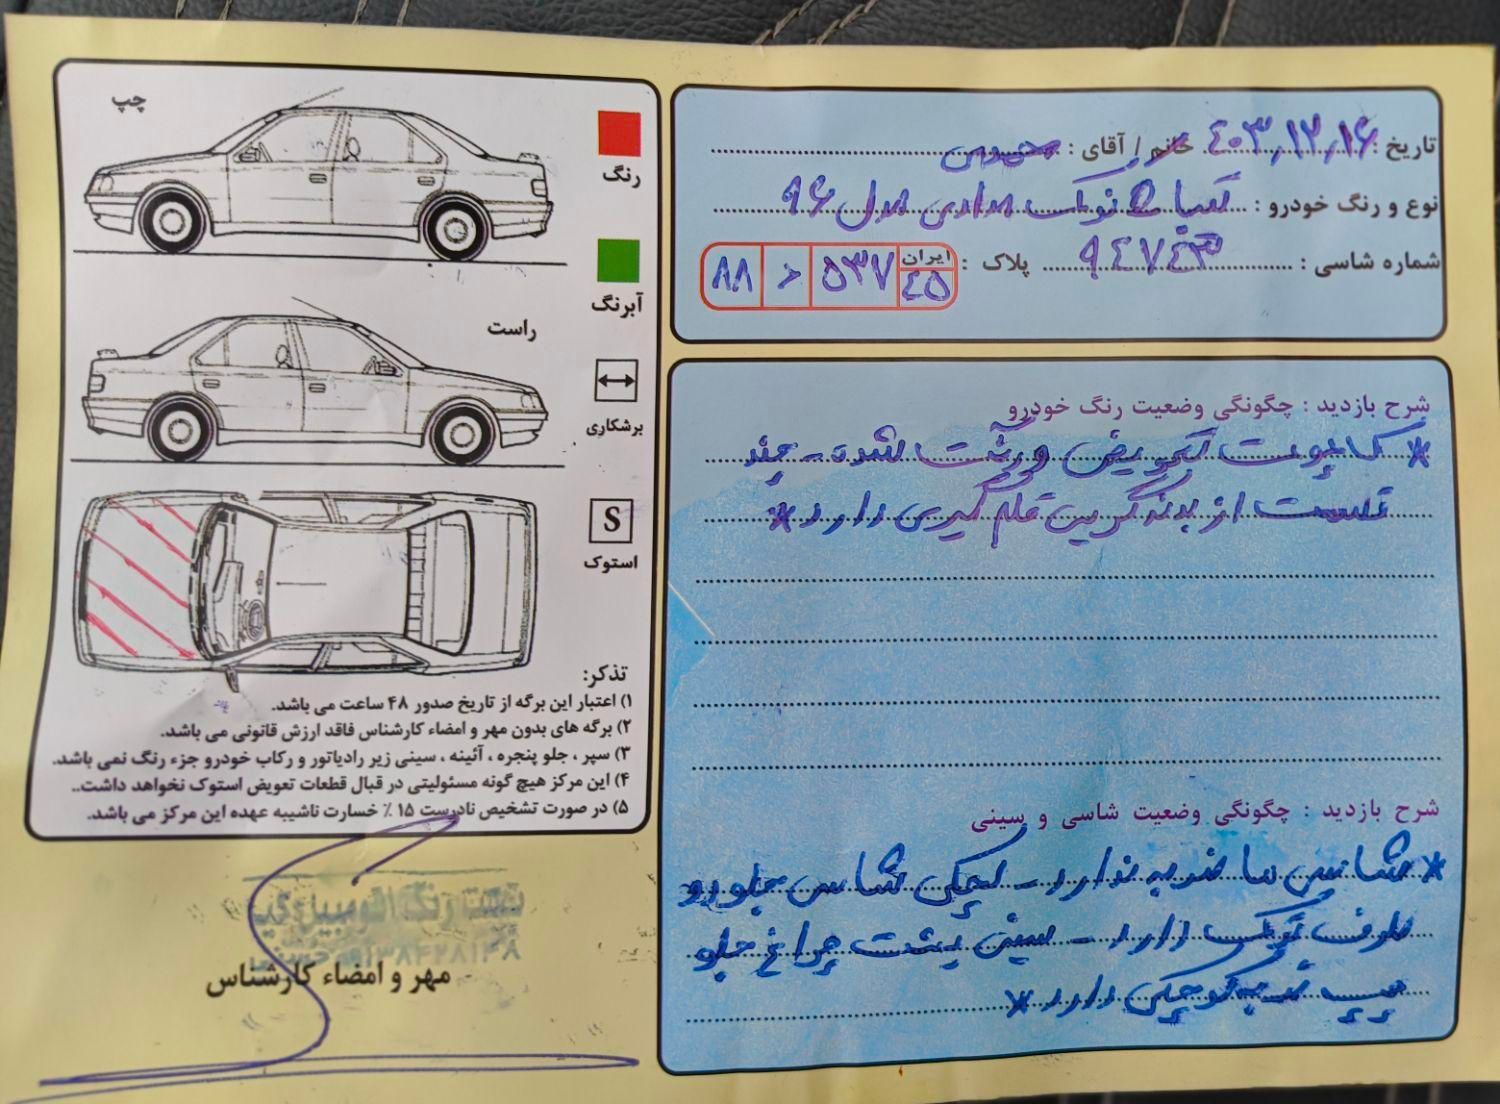 تاریخ : ۴۰۳,۱۲,۱۶ خانم / آقای :
نوع و رنگ خودرو : تیبا ۲ نوک مدادی مدل ۹۶
شماره شاسی : پلاک : ایران ۴۵ ۵۳۷ ۸۸
شرح بازدید : چگونگی وضعیت رنگ خودرو
* کاپوت تعویض و رنگ شده - چند
قسمت از بدنه گریس قلم گیری دارد *
شرح بازدید : چگونگی وضعیت شاسی و سینی
* شاسی ها ضربه ندارد - لچکی شاسی جلو دو
طرف نوک دارد - سینی پشت چراغ جلو
چپ ضربه کوچکی دارد *
چپ
رنگ
آبرنگ
راست
برشکاری
S
استوک
تذکر:
۱) اعتبار این برگه از تاریخ صدور ۴۸ ساعت می باشد.
۲) برگه های بدون مهر و امضاء کارشناس فاقد ارزش قانونی می باشد.
۳) سپر ، جلو پنجره ، آئینه ، سینی زیر رادیاتور و رکاب خودرو جزء رنگ نمی باشد.
۴) این مرکز هیچ گونه مسئولیتی در قبال قطعات تعویض استوک نخواهد داشت..
۵) در صورت تشخیص نادرست ۱۵ ٪ خسارت ناشیبه عهده این مرکز می باشد.
مهر و امضاء کارشناس